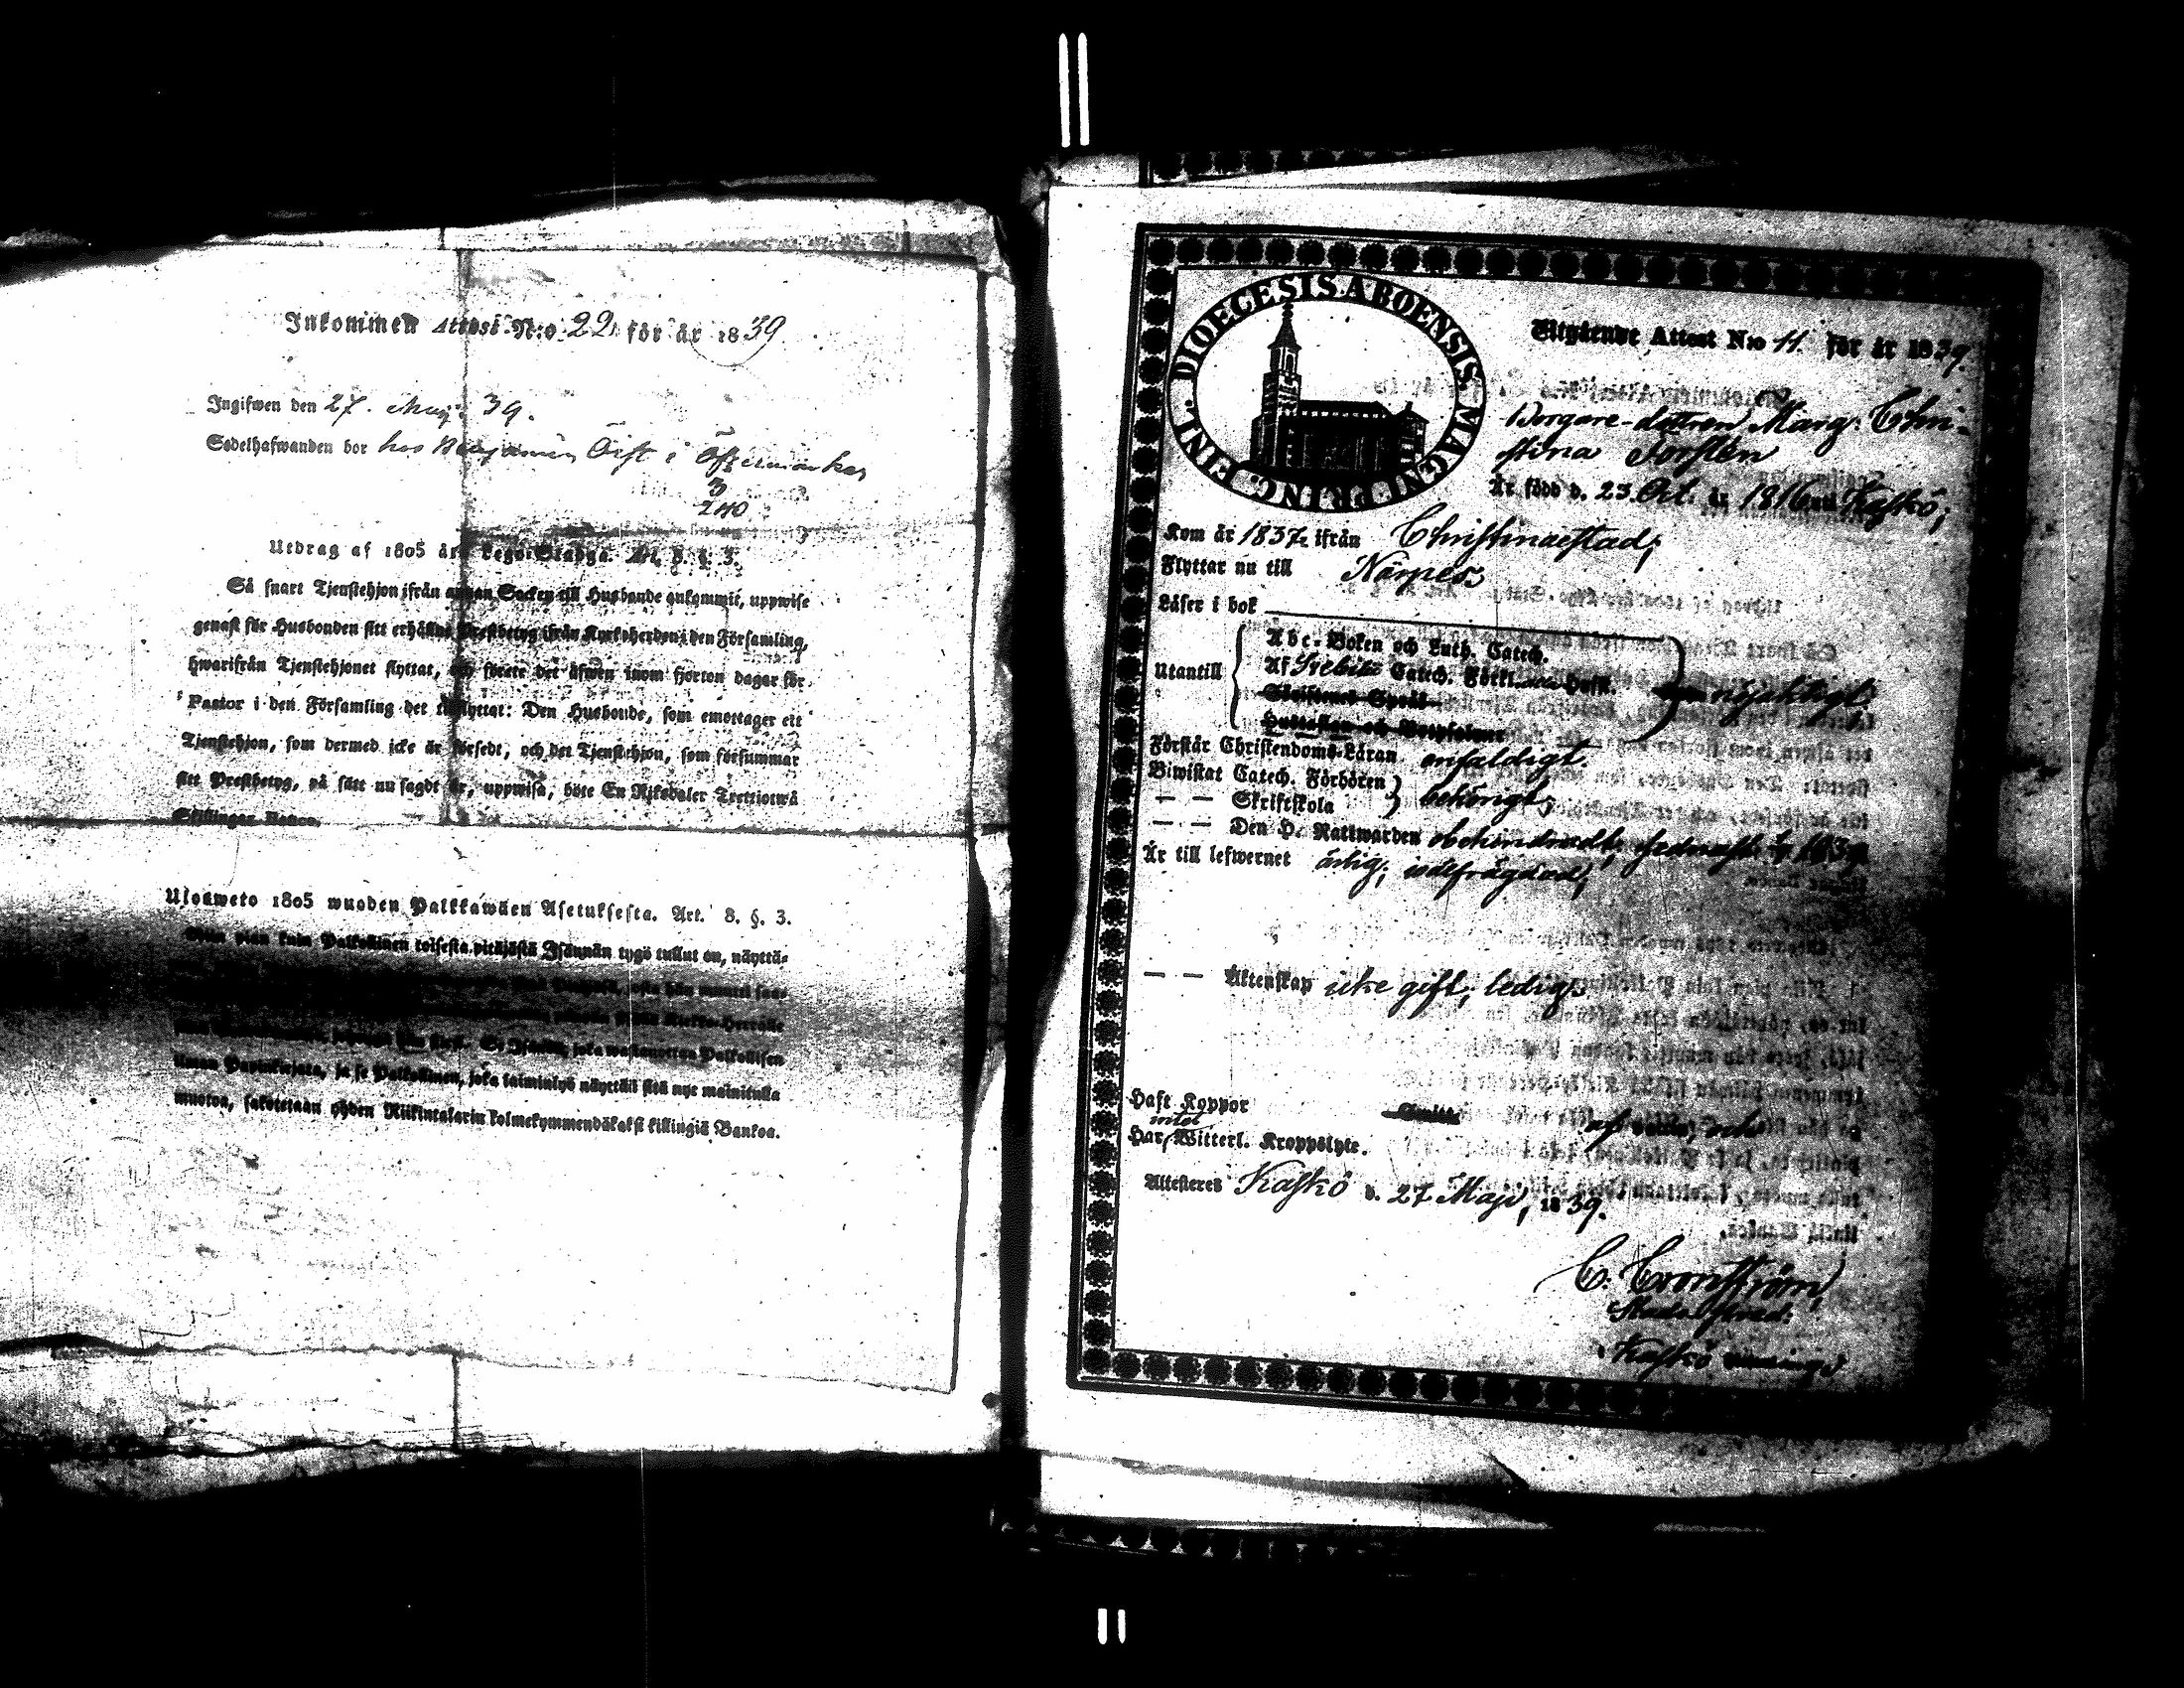 Inkommen Attest N:o 22 för år 1839
Ingifwen den 27. Maji 39.
Sedelhafwanden bor hos Benjamin Öist i Öfvermarkes
3
240
Utdrag af 1805 års Lego-Stadga. Art. 8. §. 3.
Så snart Tjenstehjon ifrån annan Socken till Husbonde ankommit, uppwise
genast för Husbonden sitt erhållne Prestbetyg ifrån Kyrkoherden i den Församling,
hwarifrån Tjenstehjonet flyttat, och förete det äfwen inom fjorton dagar för
Pastor i den Församling det tillflyttat: Den Husbonde, som emottager ett
Tjenstehjon, som dermed icke är försedt, och det Tjenstehjon, som försummar
sitt Prestbetyg, på sätt nu sagdt är, uppwisa, böte En Riksdaler Trettiotwå
Skillingar Banco.
Ulosweto 1805 wuoden Palkkawäen Asetuksesta. Art. 8. §. 3.
Niin pian kuin Palkollinen toisesta pitäjästä Isännän tygö tullut on, näyttä-
Se Isäntä, joka wastanottaa Palkollisen
ilman Papinkirjata, ja se Palkollinen, joka laiminlyö näyttää sitä nyt mainitulla
muotoa, sakotetaan yhden Riikintalarin kolmekymmendäkaksi killingiä Bankoa.
DIOECESIS ABOENSIS. MAGNI PRINC. FINL.
Utgående Attest N:o 11. för år 1839.
Borgare-dottren Marg. Chri-
stina Forstén
Är född d. 23. Oct. år 1816 uti Kaskö;
Kom år 1837 ifrån Christinaestad;
Flyttar nu till Närpes;
Läser i bok
Utantill
Abc-Boken och Luth. Catech.
Af Svebilii Catech. Förkl. Hust.
Skriftenes Språk
Hustaflan och Botpsalmer
nöjaktigt.
Förstår Christendoms-Läran enfaldigt.
Biwistat Catech. Förhören
— — Skriftskola
behörigt;
— — Den H. Nattwarden obehindradt, sednast 1839
Är till lefwernet ärlig; wälfrägdad;
— — Äktenskap icke gift; ledig;
Haft Koppor
intet
Har Witterl. Kroppslyte.
Attesteras Kaskö d. 27 Maji, 1839.
C. Cronström,
Kaskö